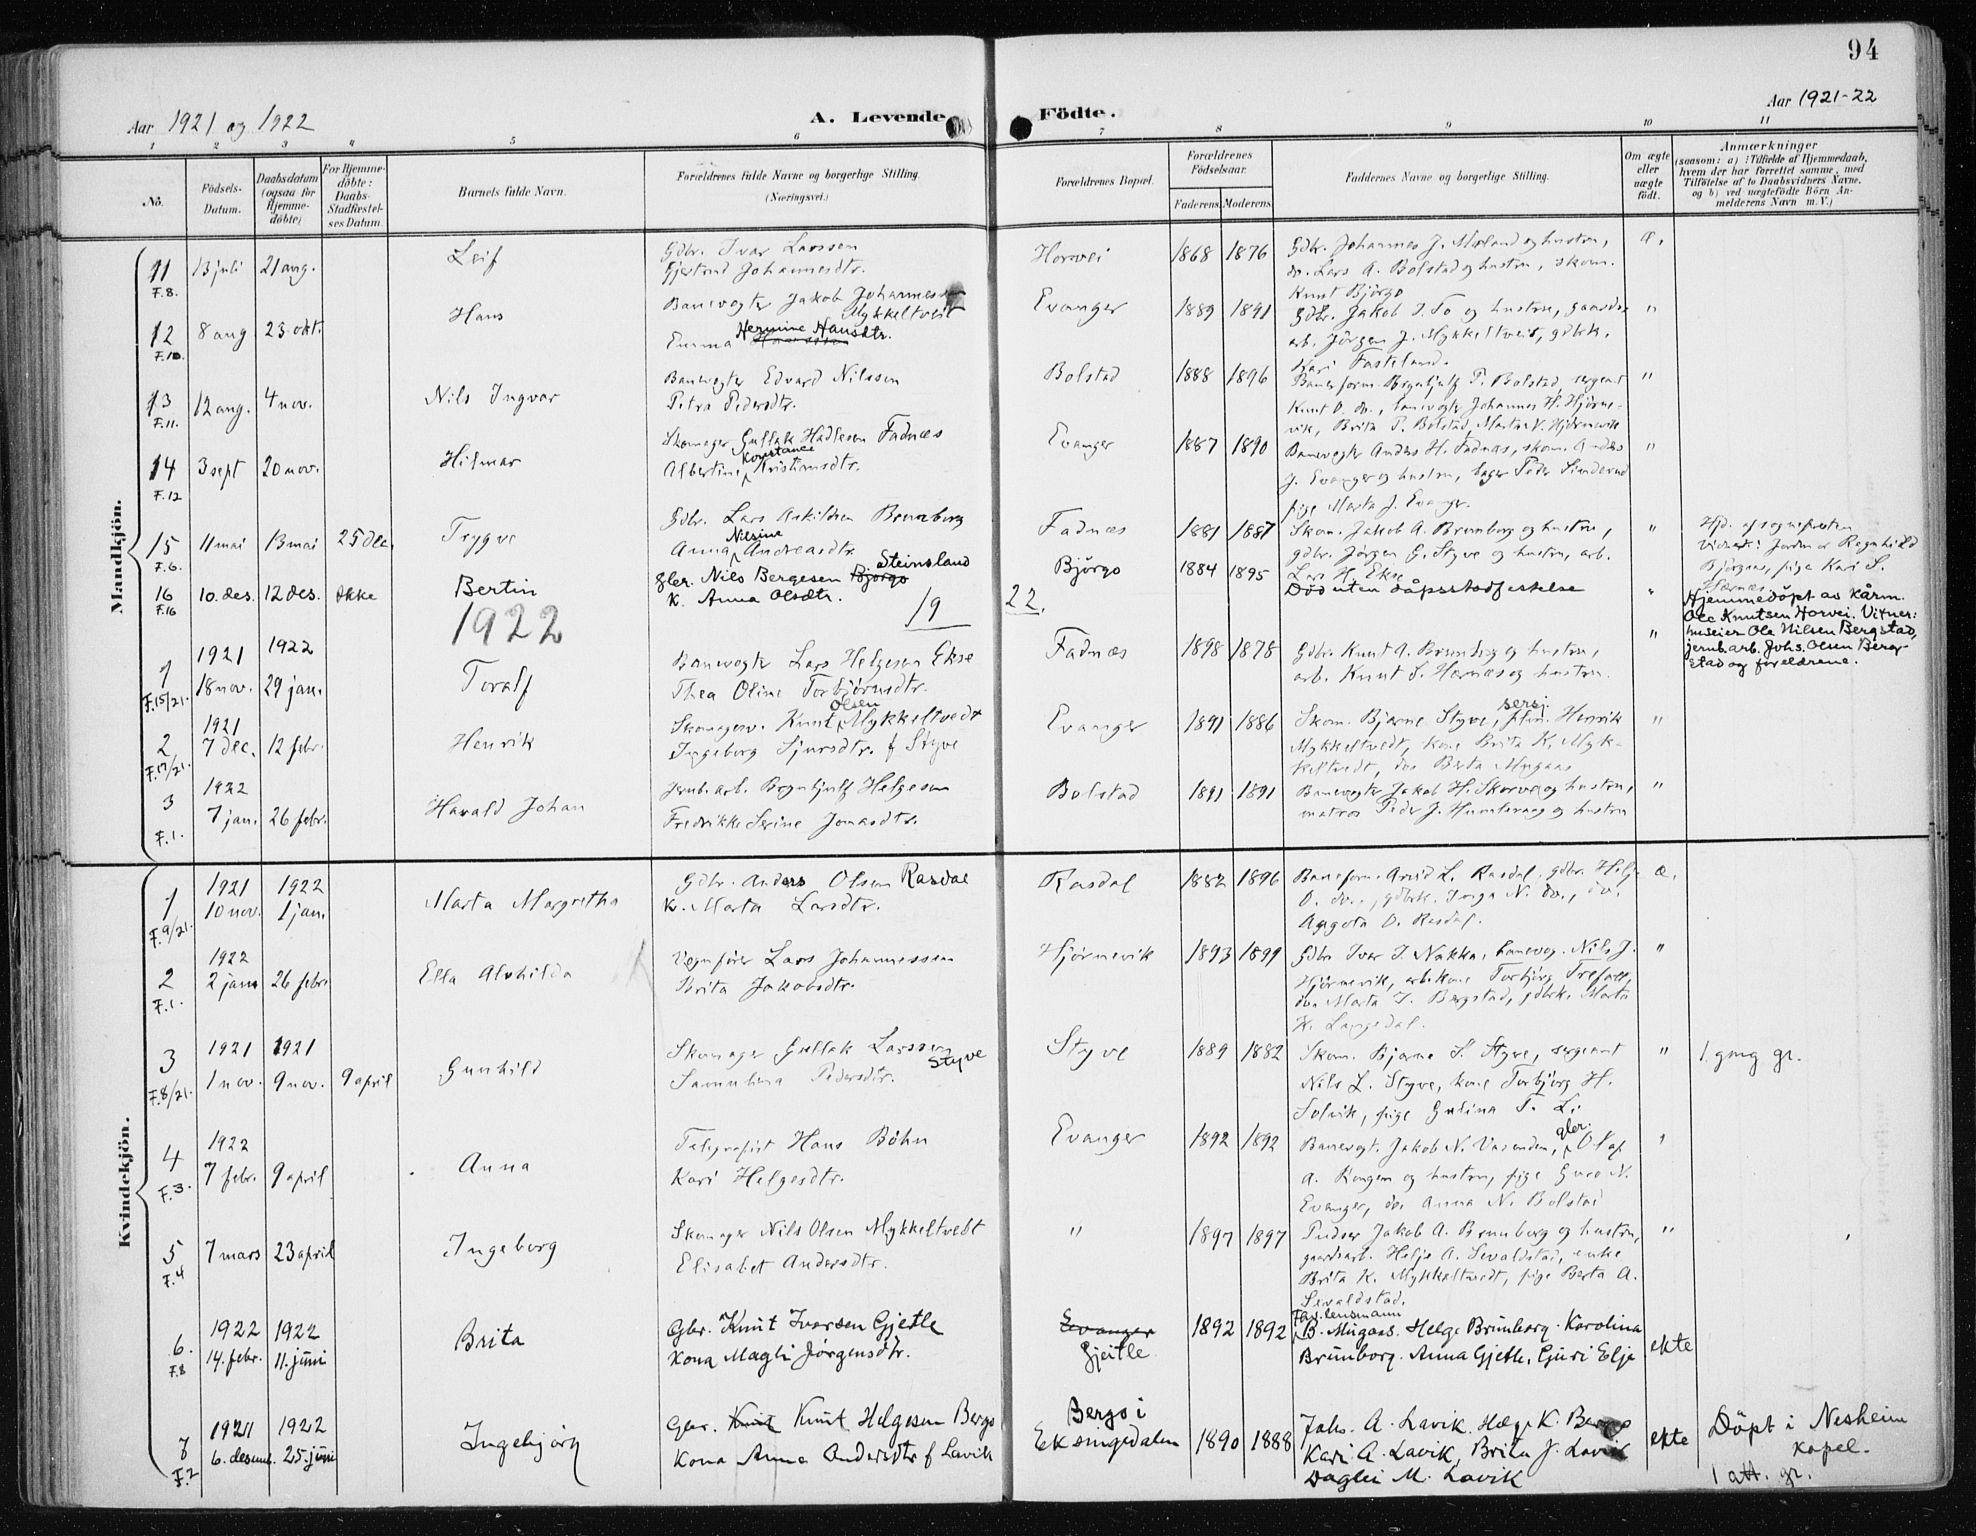 94
Aar 1921 og 1922
A. Levende Födte.
Aar 1921-22
1 2 3 4 5 6 7 8 9 10 11
No.
Födsels-Datum.
Daabsdatum (ogsaa for Hjemme-döbte)
For Hjemme-döbte: Daabs-Stadfæstel-ses Datum.
Barnets fulde Navn.
Forældrenes fulde Navne og borgerlige Stilling. (Næringsvei.)
Forældrenes Bopæl.
Forældrenes Födselsaar.
Faderens Moderens
Faddernes Navne og borgerlige Stilling.
Om ægte eller uægte födt.
Anmærkninger
(saasom: a) i Tilfælde af Hjemmedaab,
hvem der har forrettet samme, med
Tilföielse af to Daabsvidners Navne.
og b) ved uægtefödte Börn An-
melderens Navn m. V.)
Mandkjön.
11 F.8. 13 juli 21 aug. Leif
Gdbr. Ivar Larssen
Gjertrud Johannesdtr.
Horvei 1868 1876
Gdbr. Johannes J. Mæland og hustru,
do. Lars A. Bolstad og hustru, skom.
Knut Björgo
æ.
12 F.10. 8 aug 23 okt. Hans
Banevogter Jakob Johannessen
Mykkeltveit
Emma Hermine Hansdtr.
Evanger 1889 1891
Gdbr. Jakob I. Fo og hustru, gaards-
arb. Jörgen J. Mykkeltveit, gdbrk.
Kari Fasteland.
"
13 F.11. 12 aug. 4 nov. Nils Ingvar
Banevogter Edvard Nilssen
Petra Pedersdtr.
Bolstad 1888 1896
Baneform. Brynhjulf T. Bolstad, sergeant
Knut O. do., banevogter Johannes H. Hjörne-
vik, Brita T. Bolstad, Marta V. Hjörnevik
"
14 F.12 3 sept 20 nov. Hilmar
Skomager Gullak Hadlesen Fadnæs
Albertine Konstance Kristiansdtr.
Evanger 1887 1890
Banevogter Anders H. Fadnæs, skom. Anders
J. Evanger og hustru, bager Peder Sunderud
pige Marta J. Evanger.
"
15 F.6. 11 mai 13 mai 25 dec. Trygve
Gdbr. Lars Askildsen Brunborg
Anna Nilsine Andreasdtr.
Fadnæs 1881 1887
Skom. Jakob A. Brunborg og hustru,
gdbr. Jörgen G. Styve og hustru, arb.
Lars H. Ekse
"
Hjd. af sognepresten
Vidner: Jordm or Ragnhild
Björgaas, pige Kari S.
Hærnæs
16 F.16 10. des. 12 des. ikke Bertin
gbr. Nils Bergesen Björgo Steinsland
k. Anna Olsdtr.
Björgo 1884 1895
Död uten dåpsstadfestelse
"
Hjemmedöpt av Kårm.
Ole Knutsen Horvei. Vitner:
huseier Ole Nilsen Bergstad,
jernb.arb. Johs. Olsen Berg-
stad og foreldrene.
1922
19 22.
1 F.15/21. 1921 18 nov. 1922 29 jan. Toralf
Banevogter Lars Helgesen Ekse
Thea Oline Torbjörnsdtr.
Fadnæs 1898 1878
Gdbr. Knut A. Brunborg og hustru,
arb. Knut S. Hærnæs og hustru.
"
2 F.17/21. 1921 7 dec. 12 febr. Henrik
Skomagersv. Knut Olsen Mykkeltvedt
Ingeborg Sjursdtr. f Styve
Evanger 1891 1886
Skom. Bjarne Styve, sersj. Henrik
Mykkeltvedt, kone Brita K. Myk-
keltvedt, do. Berta Mugaas
"
3 F.1. 1922 7 jan. 26 febr. Harald Johan
Jernb.arb. Brynhjulf Helgesen
Fredrikke Serine Jonasdtr.
Bolstad 1891 1891
Banevogter Jakob H. Skorve og hustru,
matros Peder J. og hustru
"
Kvindekjön.
1 F.9/21. 1921 10 nov. 1922 1 jan. Marta Margretha
Gdbr. Anders Olsen Rasdal
k. Marta Larsdtr.
Rasdal 1882 1896
Baneform. Arvid L. Rasdal, gdbr. Helge
O. do., gdbrk. Inga N. do., do.
Aagota O. Rasdal.
æ.
2 F.1. 1922 2 jan. 26 febr. Ella Alvhilda
Vognförer Lars Johannessen
Brita Jakobsdtr.
Hjörnevik 1893 1899
Gdbr Iver I. Nakka, banevog. Nils J.
Hjörnevik, arb.kone Torbjörg Trefall,
do. Marta I. Bergstad, gdbrk. Marta
K. Langedal.
"
3 F.8/21. 1921 1 nov. 1921 9 nov. 9 april Gunhild
Skomager Gullak Larssen Styve
Samuline Pedersdtr.
Styve 1889 1882
Skom. Bjarne S. Styve, sergeant
Nils L. Styve, kone Torbjörg H.
Solvik, pige Gulina T. Li
"
1. gang gr.
4 F.3. 1922 7 febr. 9 april Anna
Telegrafist Hans Böhn
Kari Helgesdtr.
Evanger 1892 1892
Banevogt. Jakob N. Vasenden, gbr. Olaf
A. Rongen og hustru, pige Guro N.
Evanger, do. Anna N. Bolstad
"
5 F.4 7 mars 23 april Ingeborg
Skomager Nils Olsen Mykkeltvedt
Elisabet Andersdtr.
" 1897 1897
Pudser Jakob A. Brunborg og hustru,
gaardsarb. Helge A. Sevaldstad, enke
Brita K. Mykkeltvedt, pige Berta A.
Sevaldstad.
"
6. F.8 1922 14. febr. 1922 11. juni Brita
Gbr. Knut Ivarsen Gjetle
Kona Magli Jørgensdtr.
Evanger
Gjeitle 1892 1892
Fhv. lensmann
B. Mugaas. Helge Brunborg. Karolina
Brunborg. Anna Gjetle, Guri Elje
ekte
7 F.2 1921 6. desemb. 1922 25. juni Ingebjørg
Gbr. Knut Knut Helgesen Bergo
Kona Anna Andersdtr f Lavik
Bergo i
Eksingedalen 1890 1888
Johs. A. Lavik. Hæge K. Bergo
Kari A. Lavik, Brita J. Lavik
Dagli M. Lavik
ekte
Döpt i Nesheim
kapel.
1 att. gr.